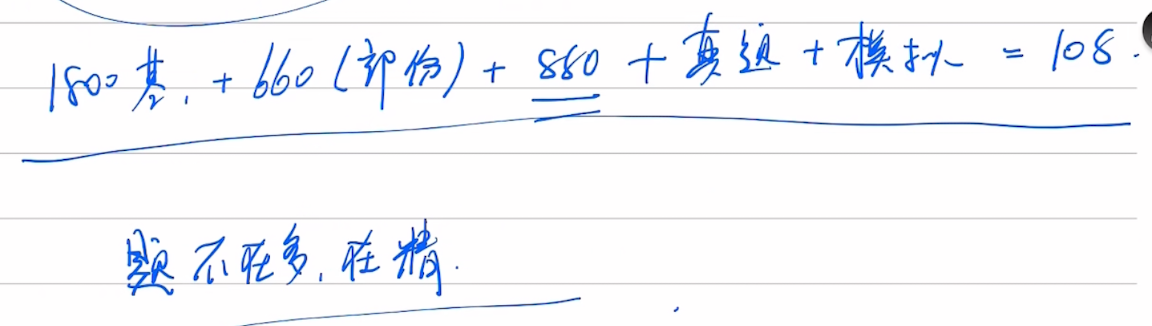 1800基. + 660(部份) + 880 + 真题 + 模拟 = 108.
题不在多, 在精.